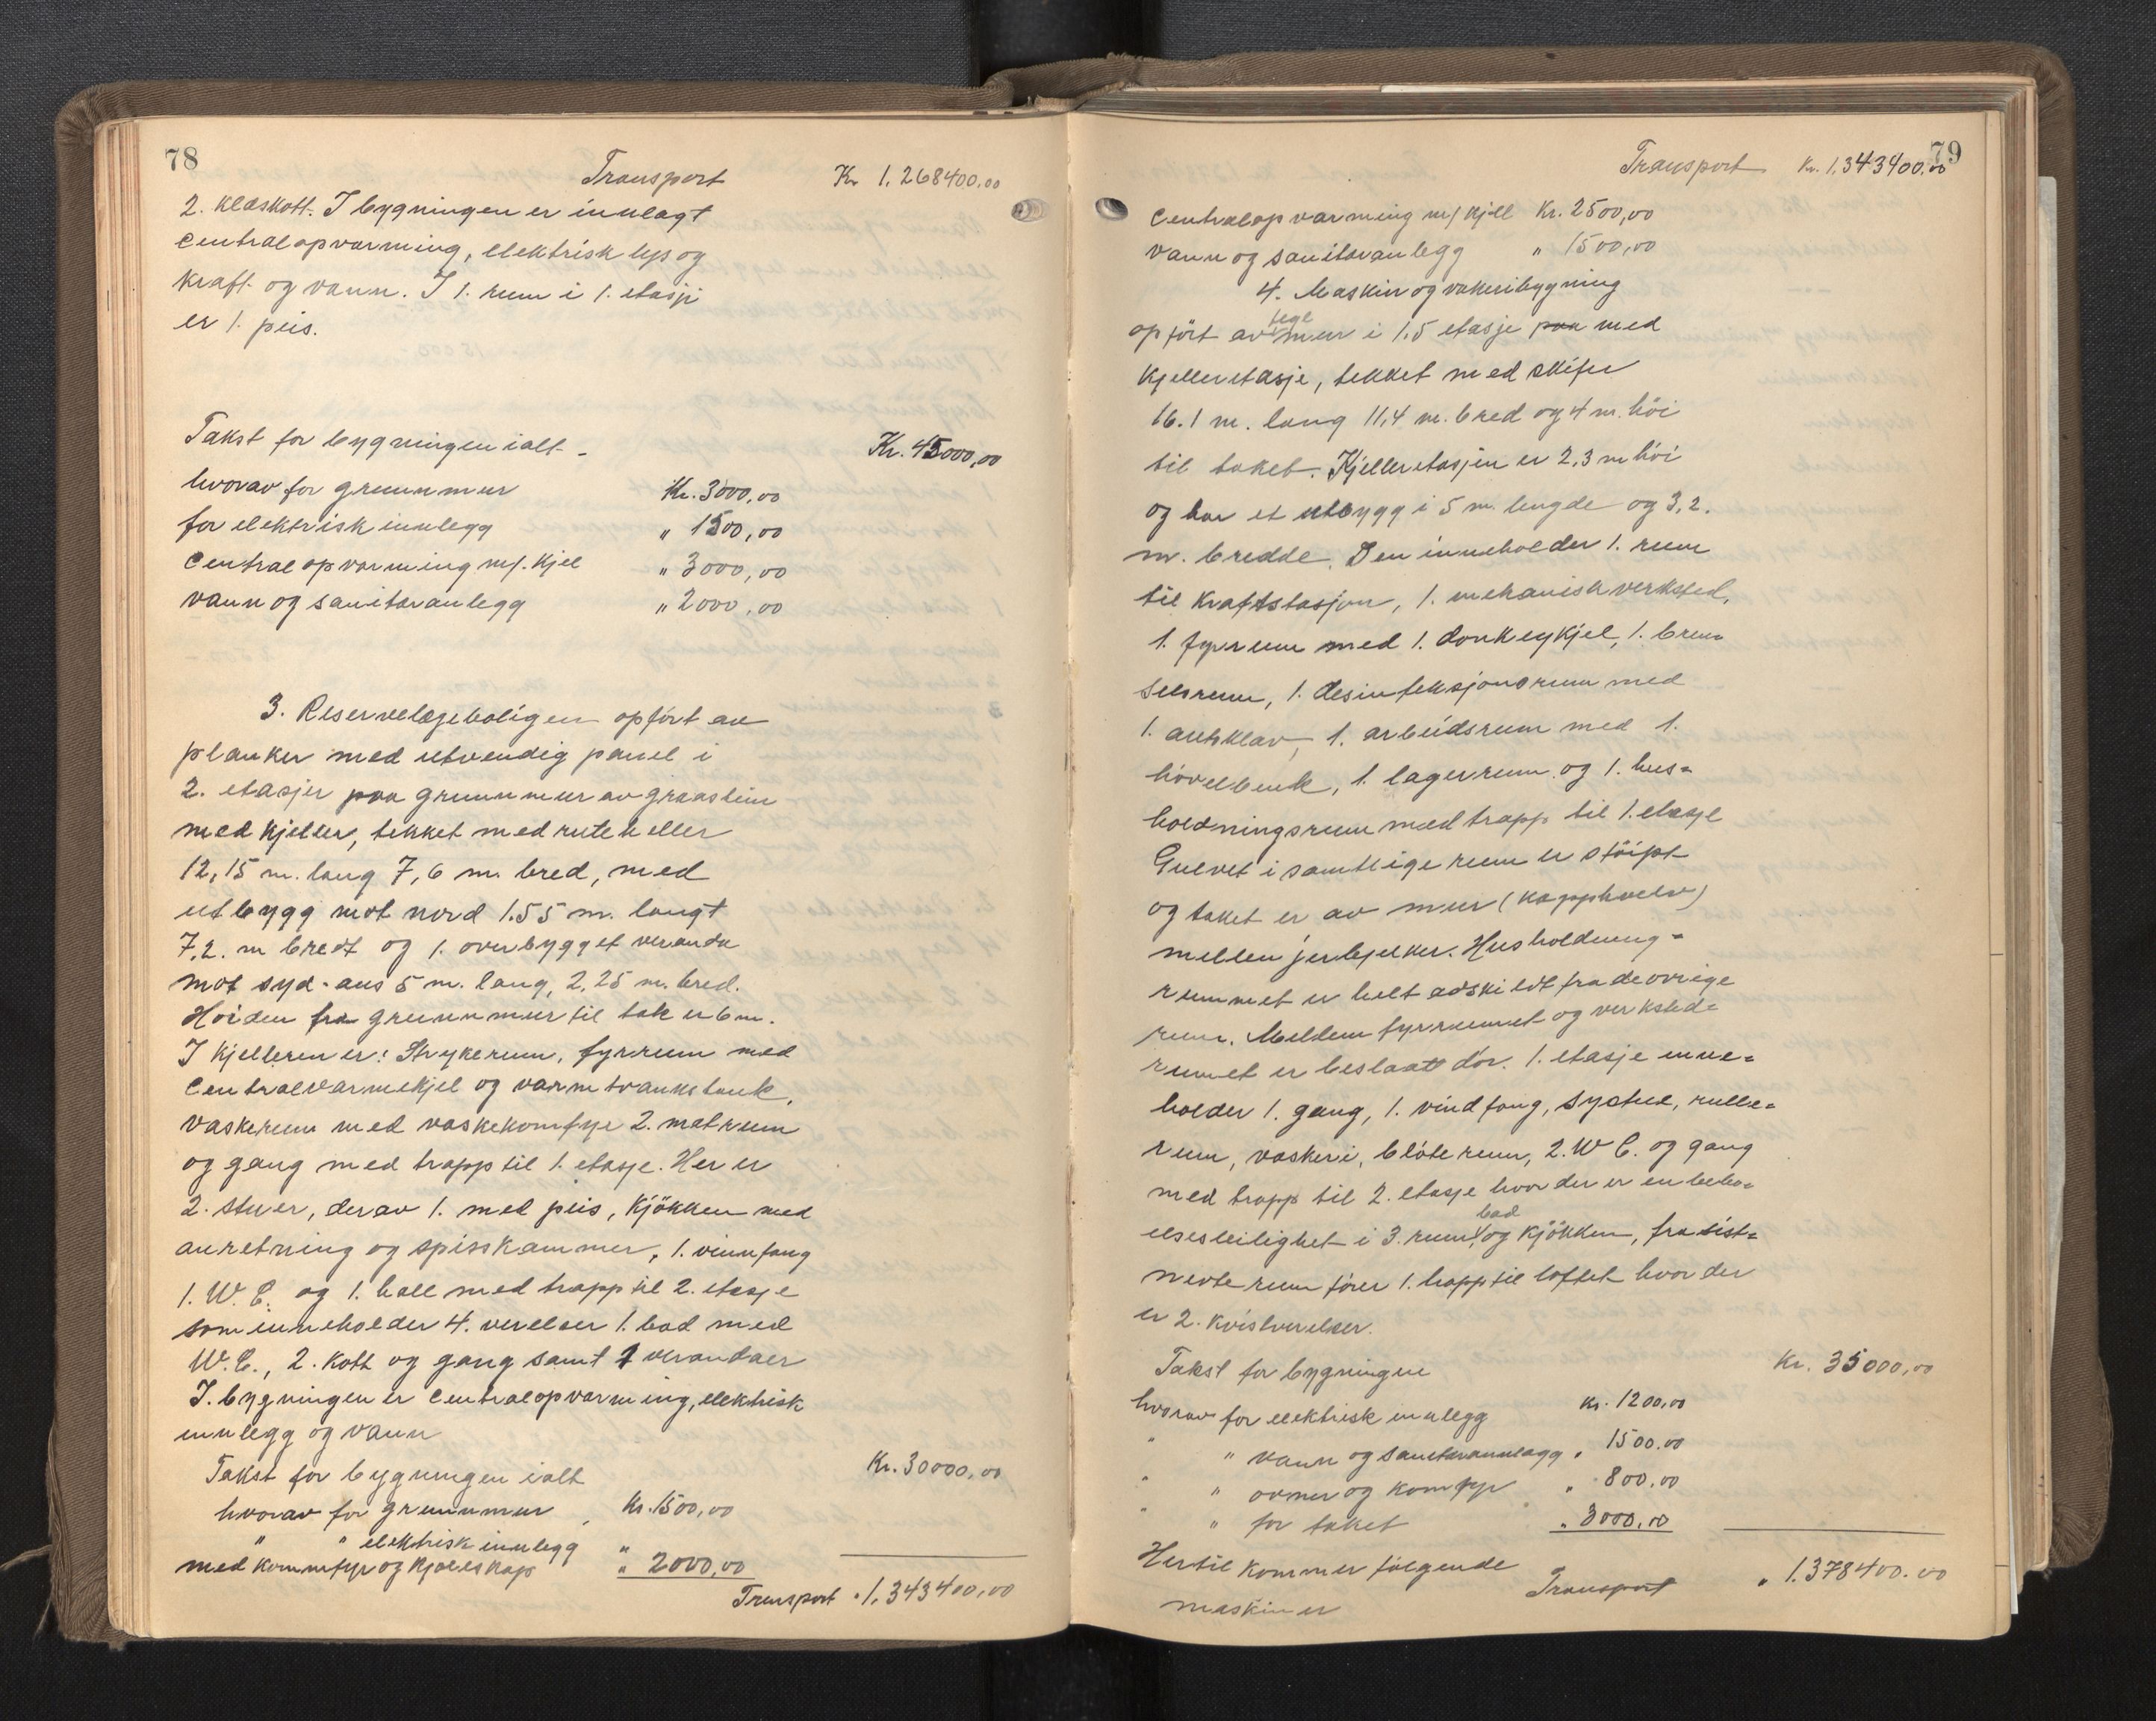 78
Transport Kr 1.268400,00
2. Kleskott. I bygningen er innlagt
Centralopvarming, elektrisk lys og
Kraft og vann. I 1. rum i 1. etasje
er 1. peis.
Takst for bygningen ialt - Kr. 45000,00
hvorav for grunnmur Kr. 3000,00
for elektrisk innlegg " 1500,00
Centralopvarming m/. Kjel " 3000,00
vann og sanitæranlegg " 2000,00
3. Reservelægeboligen opført av
planker med utvendig panel i
2. etasjer paa grunnmur av graastein
med Kjeller, tekket med ruteheller
12,15 m. lang 7,6 m. bred, med
utbygg mot nord 1.55 m. langt
7.2. m bredt og 1. overbygget veranda
mot syd-aus 5 m. lang, 2,25 m. bred.
Høiden fra grunnmur til tak er 6 m.
I Kjelleren er: Strykerum, fyrrum med
Centralvarmekjel og varmtvannstank,
vaskerum med vaskekomfyr 2. matrum
og gang med trapp til 1. etasje. Her er
2. stuer, derav 1. med peis, Kjøkken med
anretning og spisskammer, 1. vinnfang
1. W.C. og 1. hall med trapp til 2. etasje
som inneholder 4. verelser 1. bad med
W.C., 2. Kott og gang samt 1 verandaer
I. bygningen er Centralopvarming, elektrisk
innlegg og vann
Takst for bygningen ialt Kr. 30000,00
hvorav for grunnmur Kr. 1500,00
" " elektrisk innlegg "
med Kommfyr og Kjøleskap " 2000,00
Transport " 1,343400,00
79
Transport Kr. 1.343400,00
Centralopvarming m/ Kjell Kr. 2500,00
vann og sanitæranlegg " 1500,00
4. Maskin og vakeribygning
opført av tegl mur i 1,5 etasje paa med
Kjelleretasje, tekket med skifer
16.1 m. lang 11,4 m. bred og 4 m. høi
til taket. Kjelleretasjen er 2,3 m høi
og har et utbygg i 5 m. lengde og 3,2.
m. bredde. Den inneholder 1. rum
til Kraftstasjon, 1. mekanisk verksted,
1. fyrrum med 1. donkeykjel, 1. bren=
selsrum, 1. desinfeksjonsrum med
1. autoklav, 1. arbeidsrum med 1.
høvelbenk, 1. lagerrum og 1. hus=
holdningsrum med trapp til 1. etasje
Gulvet i samtlige rum er støipt
og taket er av mur (kapphvelv)
mellem jernbjelker. Husholdning=
rummet er helt adskildt fra de øvrige
rum. Mellem fyrrummet og verksted=
rumet er beslaatt dør. 1. etasje inne=
holder 1. gang, 1. vindfang, systue, rulle=
rum, vaskeri, bløterum, 2. W C. og gang
med trapp til 2. etasje hvor der er en bebo=
elsesleilighet i 3. rum, bad og Kjøkken, fra sist=
nevte rum fører 1. trapp til loftet hvor der
er 2. Kvistverelser.
Takst for bygningen Kr. 35000,00
hvorav for elektrisk innlegg Kr. 1200,00
" " vann og sanitæranlegg " 1500.00
" " ovner og komfyr " 800,00
" " for taket " 3000,00
Hertil Kommer følgende
Transport " 1.378400.00
maskiner